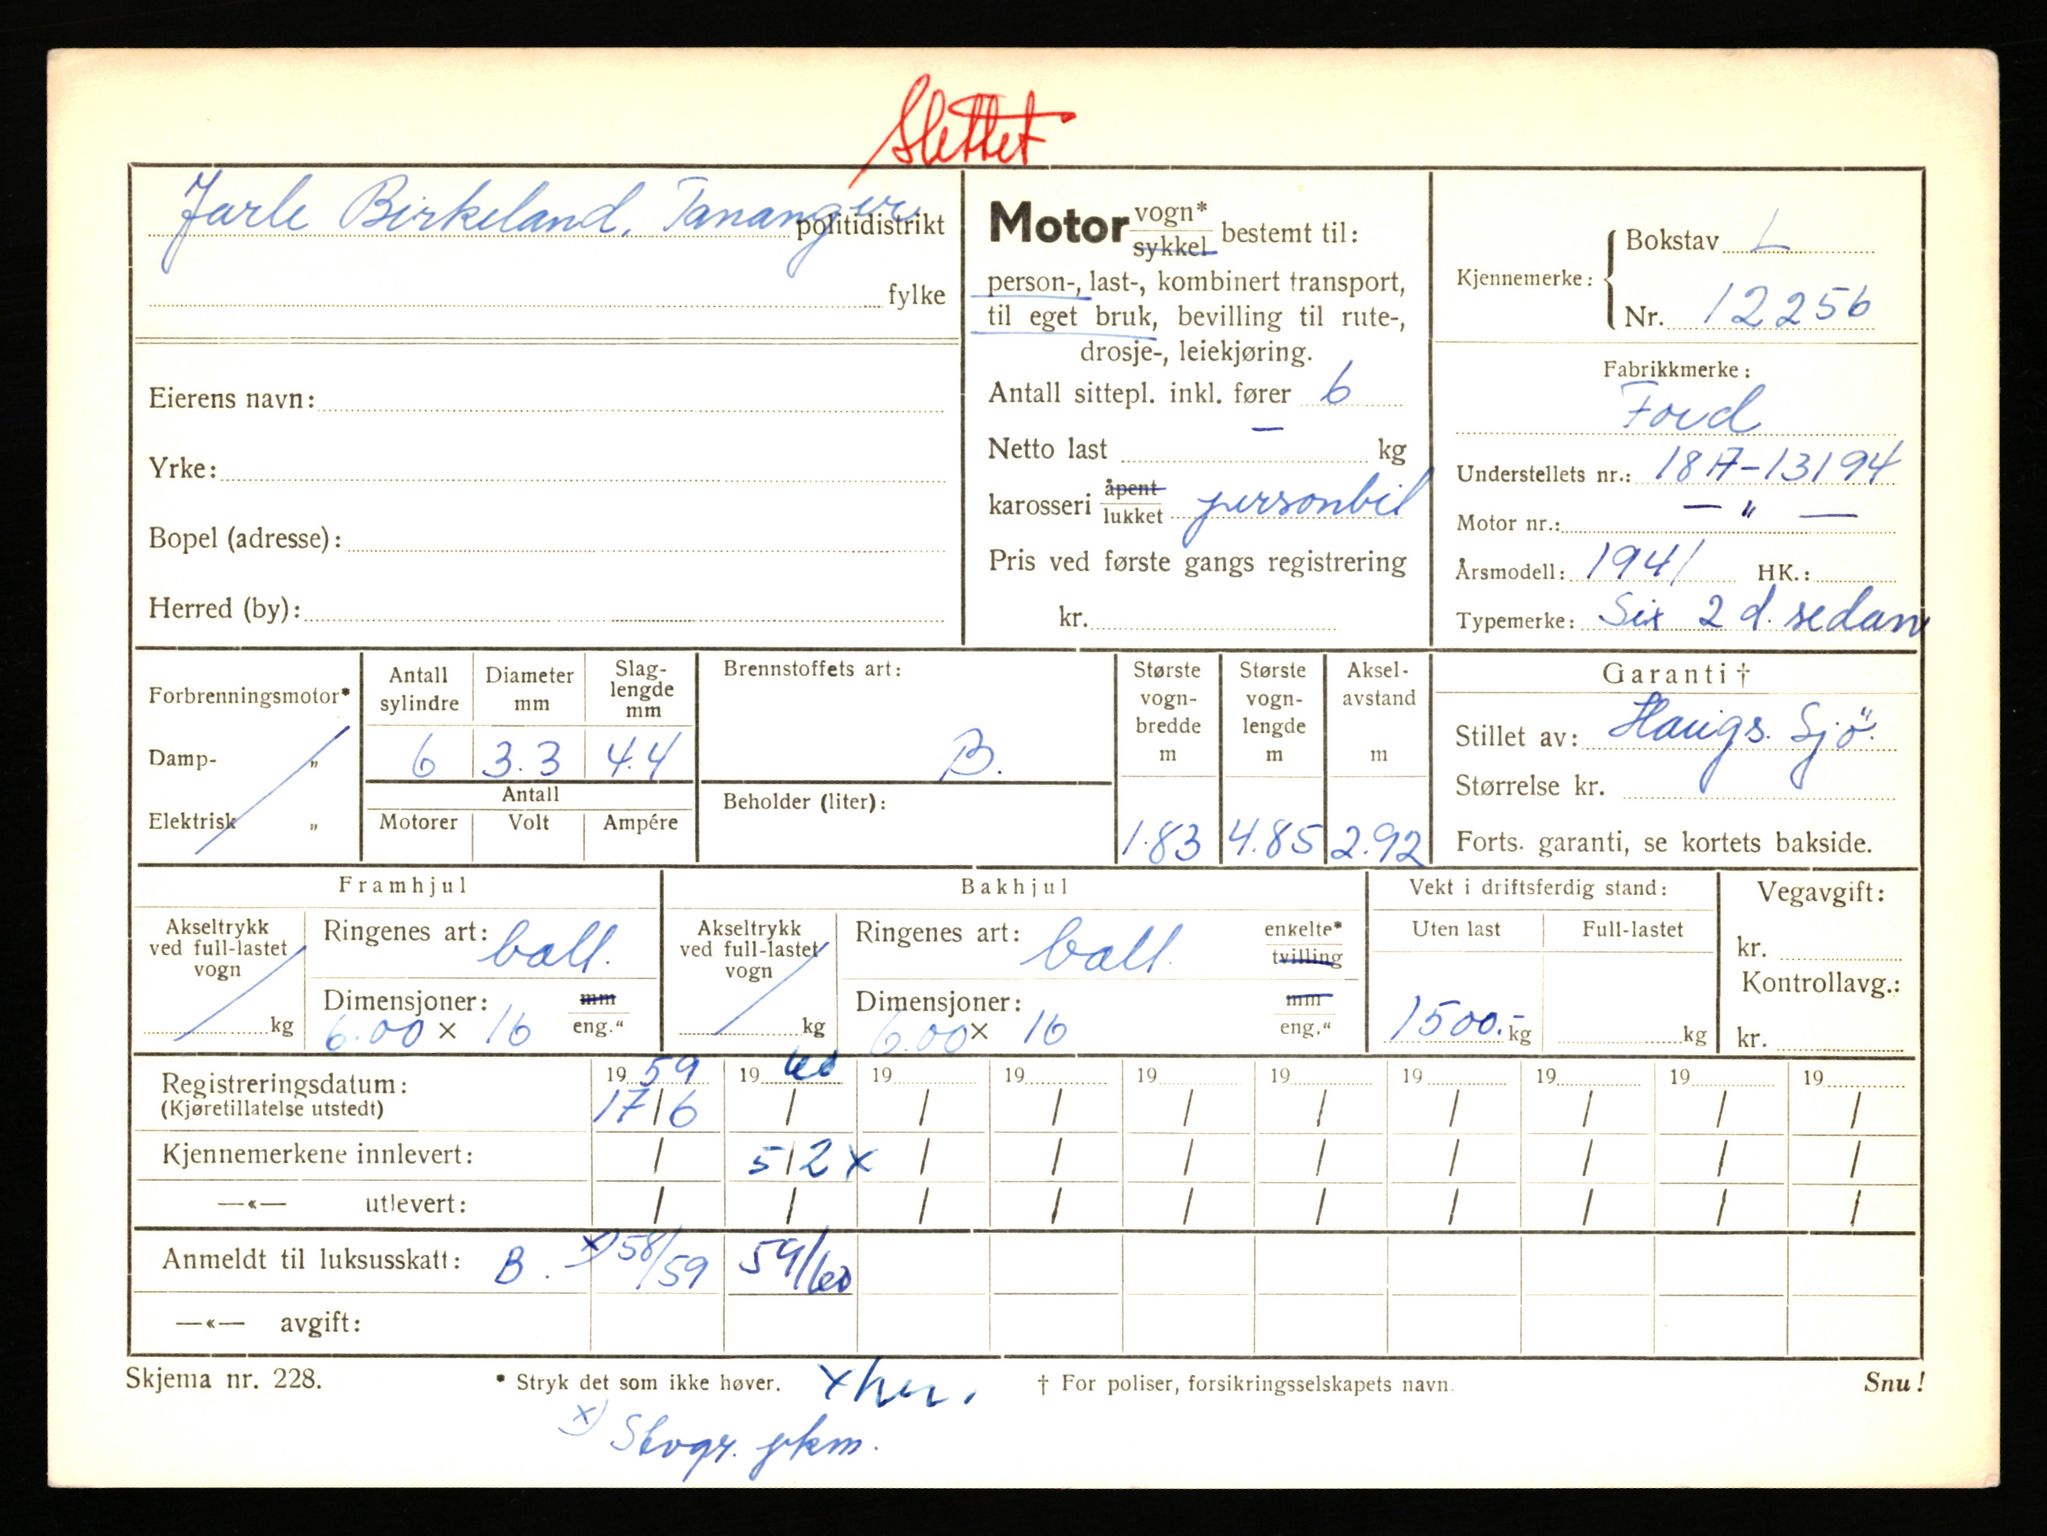 Slettet
Jarle Birkeland, Tananger politidistrikt
fylke
Eierens navn:
Yrke:
Bopel (adresse):
Herred (by):
Motor vogn* sykkel bestemt til:
person-, last-, kombinert transport,
til eget bruk, bevilling til rute-,
drosje-, leiekjøring.
Antall sittepl. inkl. fører 6
Netto last — kg
karosseri åpent lukket personbil
Pris ved første gangs registrering
kr.
Kjennemerke: Bokstav L
Nr. 12256
Fabrikkmerke:
Ford
Understellets nr.: 18A-13194
Motor nr.: — " —
Årsmodell: 1941 HK.:
Typemerke: Six 2 d. sedan
Forbrenningsmotor*
Damp- „
Elektrisk „
Antall sylindre Diameter mm Slag-lengde mm
6 3.3 4.4
Antall
Motorer Volt Ampére
Brennstoffets art:
B.
Beholder (liter):
Største vogn-bredde m Største vogn-lengde m Aksel-avstand m
1.83 4.85 2.92
Garanti †
Stillet av: Haugs. Sjö.
Størrelse kr.
Forts. garanti, se kortets bakside.
Framhjul
Akseltrykk ved full-lastet vogn
kg
Ringenes art: ball.
Dimensjoner: mm
6.00 × 16 eng."
Bakhjul
Akseltrykk ved full-lastet vogn
kg
Ringenes art: ball. enkelte* tvilling
Dimensjoner: mm
6.00 × 16 eng."
Vekt i driftsferdig stand:
Uten last Full-lastet
1500.- kg kg
Vegavgift:
kr.
Kontrollavg.:
kr.
Registreringsdatum: 19 59 19 60 19 19 19 19 19 19 19 19
(Kjøretillatelse utstedt) 17/6 / / / / / / / / /
Kjennemerkene innlevert: / 5/2 x / / / / / / / /
—«— utlevert: / / / / / / / / / /
Anmeldt til luksusskatt: B. x) 58/59 59/60
—«— avgift:
Skjema nr. 228. * Stryk det som ikke høver. x her. † For poliser, forsikringsselskapets navn. Snu!
x) Stvgr. pkm.